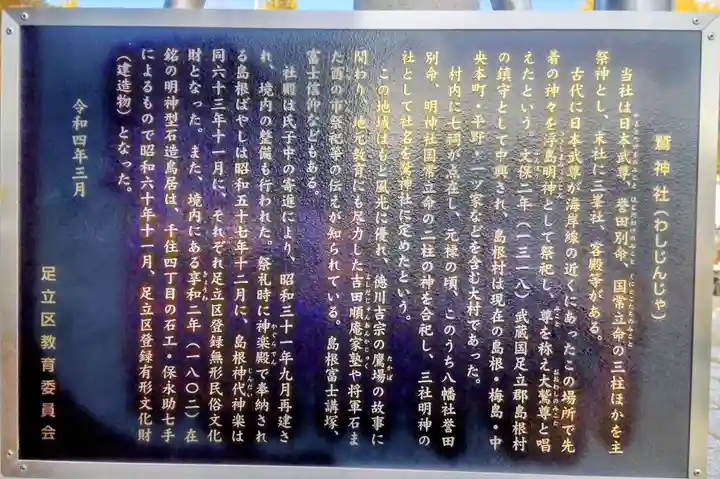 鷲神社（わしじんじゃ）
当社は日本武尊、誉田別命、国常立命の三柱ほかを主
祭神とし、末社に三峯社、客殿等がある。
古代に日本武尊が海岸線の近くにあったこの場所で先
着の神々を浮島明神として祭祀し、尊を称え大鷲尊と唱
えたという。文保二年（一三一八）武蔵国足立郡島根村
の鎮守として中興され、島根村は現在の島根・梅島・中
央本町・平野・一ツ家などを含む大村であった。
村内に七祠が点在し、元禄の頃、このうち八幡社誉田
別命、明神社国常立命の二柱の神を合祀し、三社明神の
社として社名を鷲神社に定めたという。
この地域はもと風光に優れ、徳川吉宗の鷹場の故事に
関わり、地元教育にも尽力した吉田順庵家塾や将軍石ま
た酉の市祭祀等の伝えが知られている。島根富士講塚、
富士信仰などもある。
社殿は氏子中の寄進により、昭和三十一年九月再建さ
れ、境内の整備も行われた。祭礼時に神楽殿で奉納され
る島根ばやしは昭和五十七年十二月に、島根神代神楽は
同六十三年十一月に、それぞれ足立区登録無形民俗文化
財となった。また、境内にある享和二年（一八〇二）在
銘の明神型石造鳥居は、千住四丁目の石工・保永助七手
によるもので昭和六十年十一月、足立区登録有形文化財
（建造物）となった。
令和四年三月
足立区教育委員会